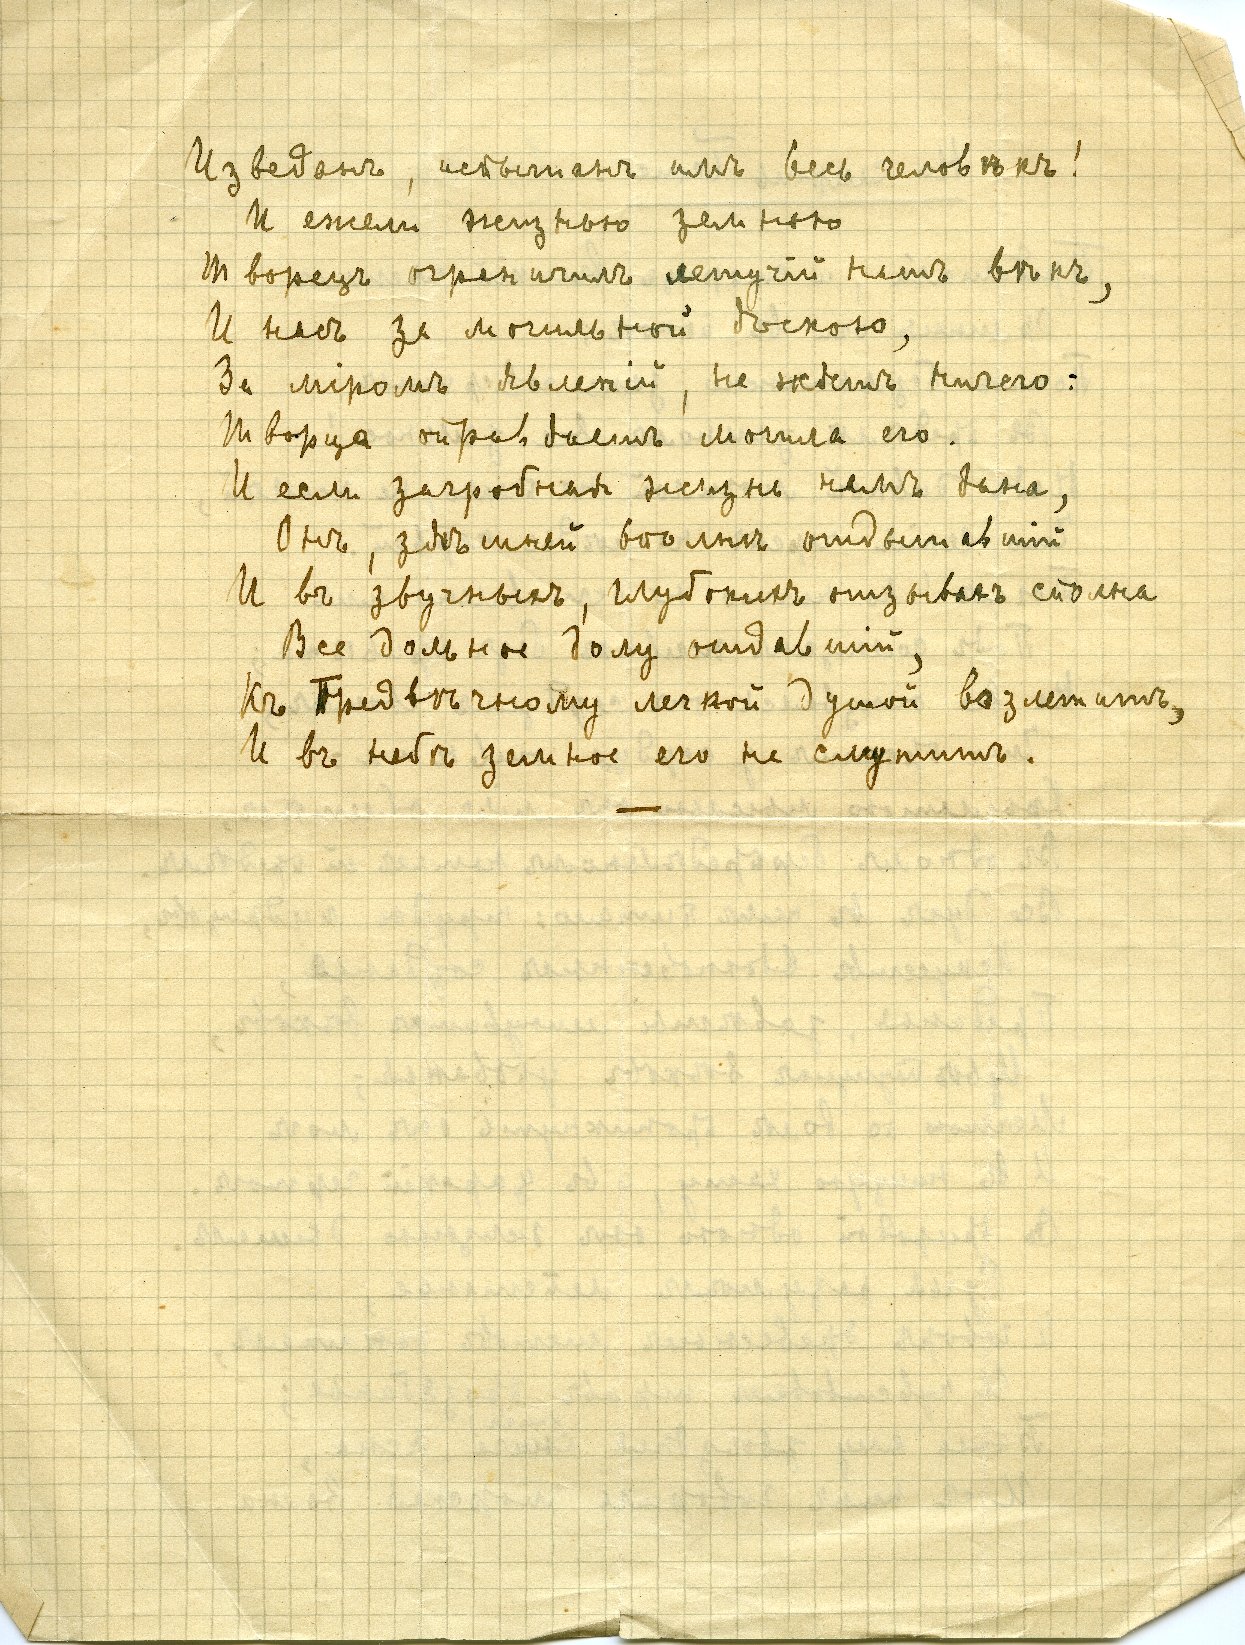 Изведанъ, испытанъ имъ весь человѣкъ!
И ежели жизнью земною
Творецъ ограничилъ летучій нашъ вѣкъ,
И насъ за могильной доскою,
За міромъ явленій, не ждетъ ничего:
Творца оправдаетъ могила его.
И если загробная жизнь намъ дана,
Онъ, здѣшней вполнѣ отдышавшій
И въ звучныхъ, глубокихъ отзывахъ сполна
Все дольное долу отдавшій,
Къ Предвѣчному легкой душой возлетитъ,
И въ небѣ земное его не смутитъ.